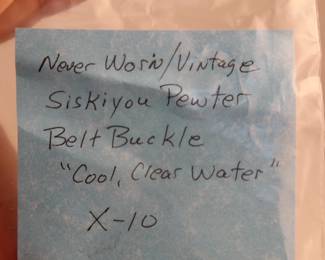 Never Worn/Vintage
Siskiyou Pewter
Belt Buckle
"Cool, Clear Water"
X-10